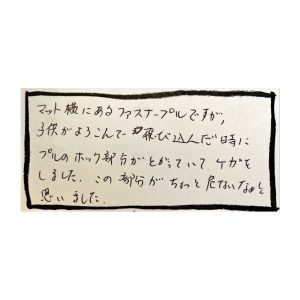 マット横にあるファスナープルですが、
子供がよろこんで飛び込んだ時に
プルのホック部分がとがっていてケガを
しました。この部分がちょっと危ないなぁと
思いました。